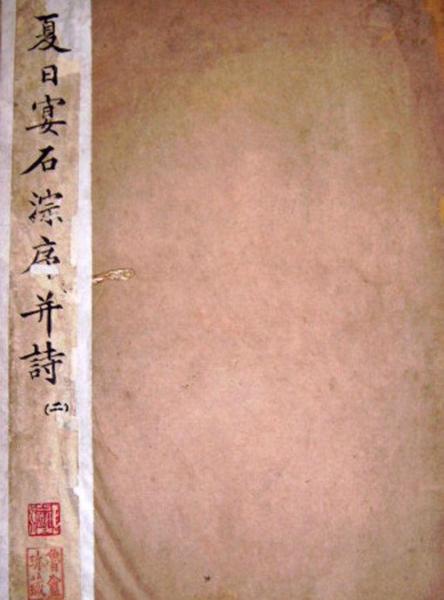 夏日宴石淙序并詩
(二)